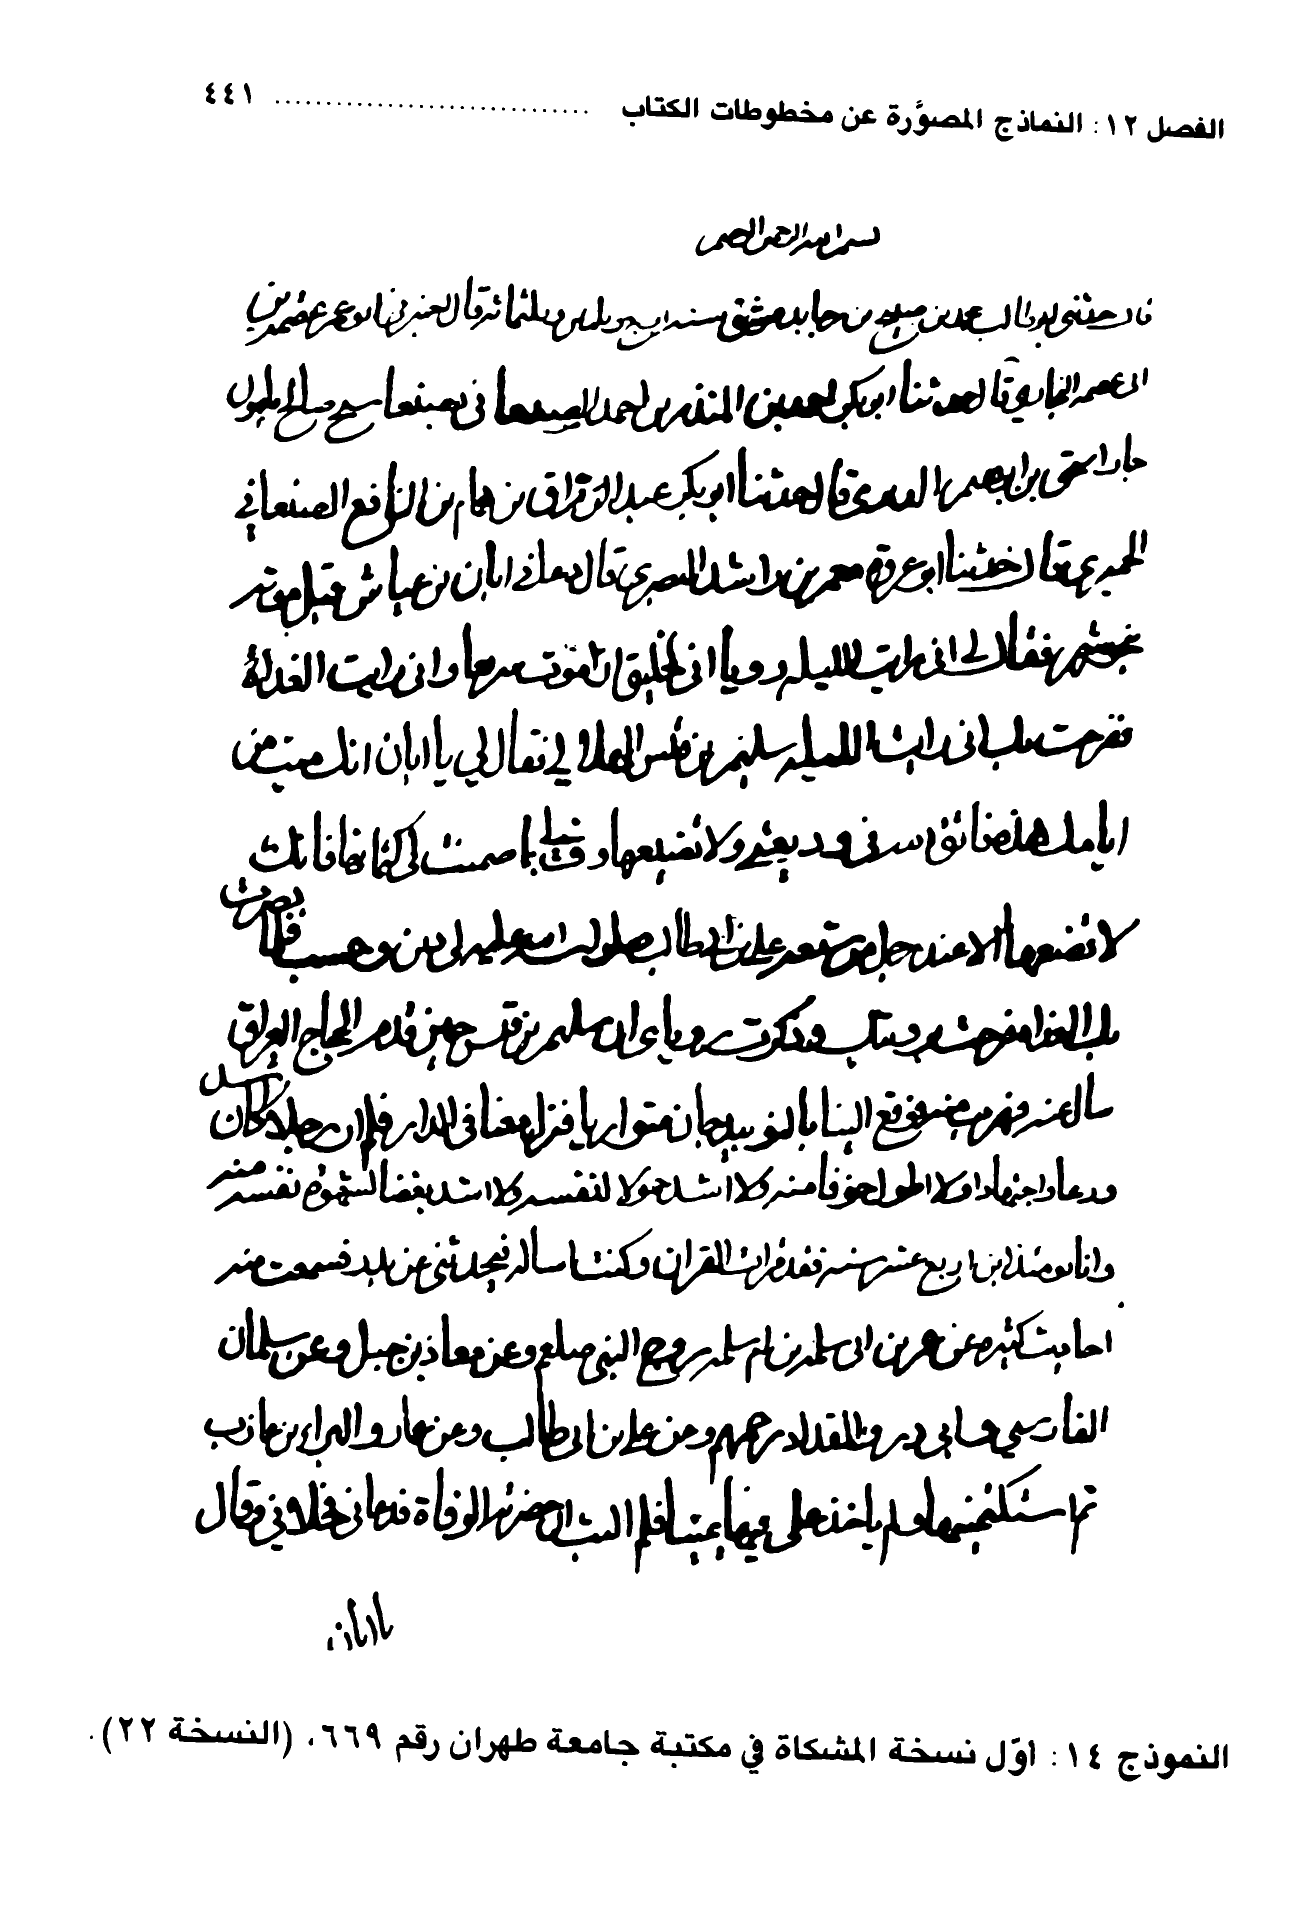 الفصل ١٢: النماذج المصوَّرة عن مخطوطات الكتاب ٤٤١
بسم الله الرحمن الرحيم
قال حدثني ابو طالب محمد بن صبيح بن رجا بدمشق سنه اربع وثلثين وثلثمائة قال اخبرني ابو عمر عصمة بن
ابى عصمه البخاري قال حدثنا ابو بكر احمد بن المنذر بن احمد الصنعاني بصنعا شيخ صالح مامون
جار اسحق بن ابرهيم الدبري قال حدثنا ابو بكر عبد الرزاق بن همام بن النافع الصنعاني
الحميري قال حدثنا ابو عروة معمر بن راشد البصري قال دعاني ابان بن عياش قبل موته
بشهر فقال لي انى رايت الليله رويا انى لخليق ان اموت سريعا وانى رايت الغداة
ففرحت بك انى رايت الليله سليم بن قيس الهلالي فقال لي يا ابان انك ميت من
ايامك هذه فاتق الله في وديعتي ولا تضيعها وف لي بما ضمنت لى كتمانها فانك
لا تضعها الا عند رجل من شيعه على بن ابي طالب صلوات الله عليه له دين وحسب فلما بصرت
بك الغداه فرحت برويتك وذكرت روياى ان سليم بن قيس حين قدم الحجاج العراق سال
سال عنه فهرب منه فوقع الينا بالنوبندجان متواريا فنزل معنا فى الدار فلم ار رجلا كان
ودعا واجتهادا ولا اطول خوفا منه ولا اشد خمولا لنفسه ولا اشد بغضا لشهوة نفسه منه
وانا يومئذ ابن اربع عشره سنه فقد قرات القران وكنت اساله فيحدثني عن بدر فسمعت منه
احاديث كثيره عن عمر بن ابى سلمه بن ام سلمه زوج النبى صلعم وعن معاذ بن جبل وعن سلمان
الفارسي وابي ذر والمقداد رحمهم وعن على بن ابى طالب وعن عمار والبراء بن عازب
ثم استكتمنيها ولم ياخذ على فيها يمينا فلم البث ان حضرته الوفاة فدعانى فخلا بي وقال
يا ابان
النموذج ١٤: اوّل نسخة المشكاة في مكتبة جامعة طهران رقم ٦٦٩، (النسخة ٢٢).